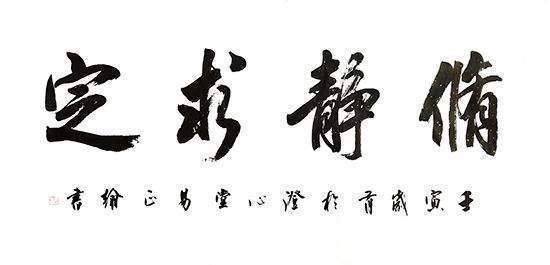 脩静求定
壬寅歲首於澄心堂易正書